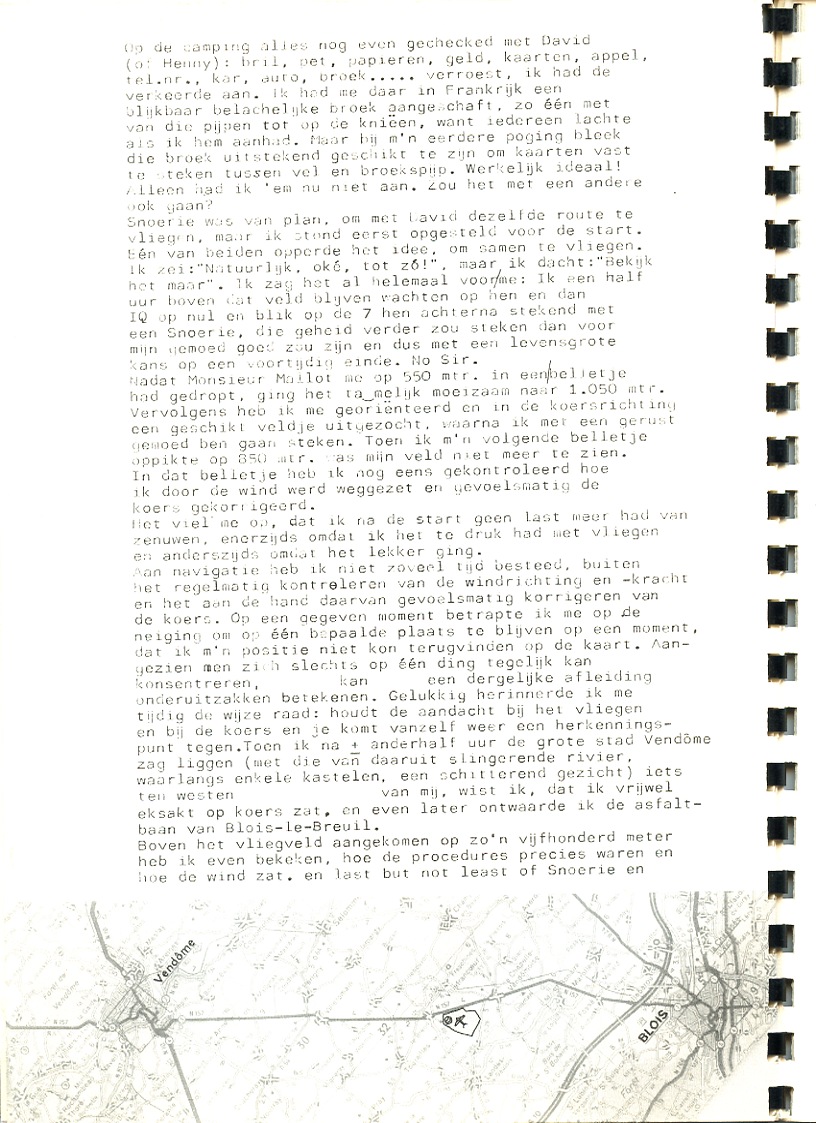 Op de camping alles nog even gechecked met David
(of Henny): bril, pet, papieren, geld, kaarten, appel,
tel.nr., kar, auto, broek..... verroest, ik had de
verkeerde aan. Ik had me daar in Frankrijk een
blijkbaar belachelijke broek aangeschaft, zo één met
van die pijpen tot op de knieën, want iedereen lachte
als ik hem aanhad. Maar bij m'n eerdere poging bleek
die broek uitstekend geschikt te zijn om kaarten vast
te steken tussen vel en broekspijp. Werkelijk ideaal!
Alleen had ik 'em nu niet aan. Zou het met een andere
ook gaan?
Snoerie was van plan, om met David dezelfde route te
vliegen, maar ik stond eerst opgesteld voor de start.
Eén van beiden opperde het idee, om samen te vliegen.
Ik zei:"Natuurlijk, oké, tot zó!", maar ik dacht:"Bekijk
het maar". Ik zag het al helemaal voor/me: Ik een half
uur boven dat veld blijven wachten op hen en dan
IQ op nul en blik op de 7 hen achterna stekend met
een Snoerie, die geheid verder zou steken dan voor
mijn gemoed goed zou zijn en dus met een levensgrote
kans op een voortijdig einde. No Sir.
Nadat Monsieur Mallot me op 550 mtr. in een/belletje
had gedropt, ging het ta_melijk moeizaam naar 1.050 mtr.
Vervolgens heb ik me georiënteerd en in de koersrichting
een geschikt veldje uitgezocht, waarna ik met een gerust
gemoed ben gaan steken. Toen ik m'n volgende belletje
oppikte op 850 mtr. was mijn veld niet meer te zien.
In dat belletje heb ik nog eens gekontroleerd hoe
ik door de wind werd weggezet en gevoelsmatig de
koers gekorrigeerd.
Het viel me op, dat ik na de start geen last meer had van
zenuwen, enerzijds omdat ik het te druk had met vliegen
en anderszijds omdat het lekker ging.
Aan navigatie heb ik niet zoveel tijd besteed, buiten
het regelmatig kontroleren van de windrichting en -kracht
en het aan de hand daarvan gevoelsmatig korrigeren van
de koers. Op een gegeven moment betrapte ik me op de
neiging om op één bepaalde plaats te blijven op een moment,
dat ik m'n positie niet kon terugvinden op de kaart. Aan-
gezien men zich slechts op één ding tegelijk kan
konsentreren, kan een dergelijke afleiding
onderuitzakken betekenen. Gelukkig herinnerde ik me
tijdig de wijze raad: houdt de aandacht bij het vliegen
en bij de koers en je komt vanzelf weer een herkennings-
punt tegen.Toen ik na ± anderhalf uur de grote stad Vendôme
zag liggen (met die van daaruit slingerende rivier,
waarlangs enkele kastelen, een schitterend gezicht) iets
ten westen van mij, wist ik, dat ik vrijwel
eksakt op koers zat, en even later ontwaarde ik de asfalt-
baan van Blois-le-Breuil.
Boven het vliegveld aangekomen op zo'n vijfhonderd meter
heb ik even bekeken, hoe de procedures precies waren en
hoe de wind zat. en last but not least of Snoerie en
Vendôme
BLOIS
N 157
N 157